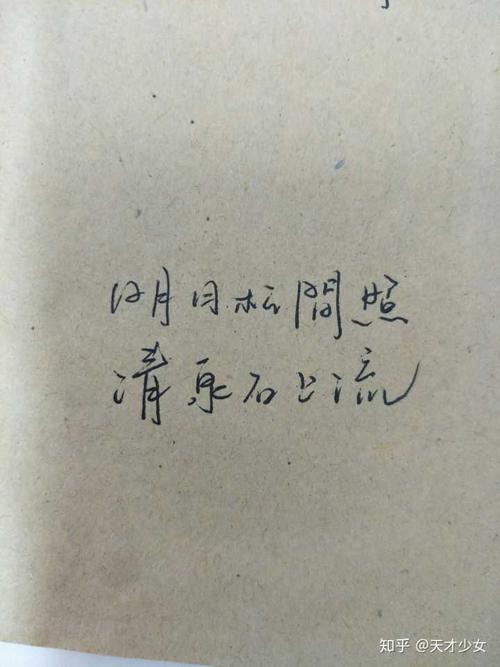 明月松間照
清泉石上流
知乎 @天才少女